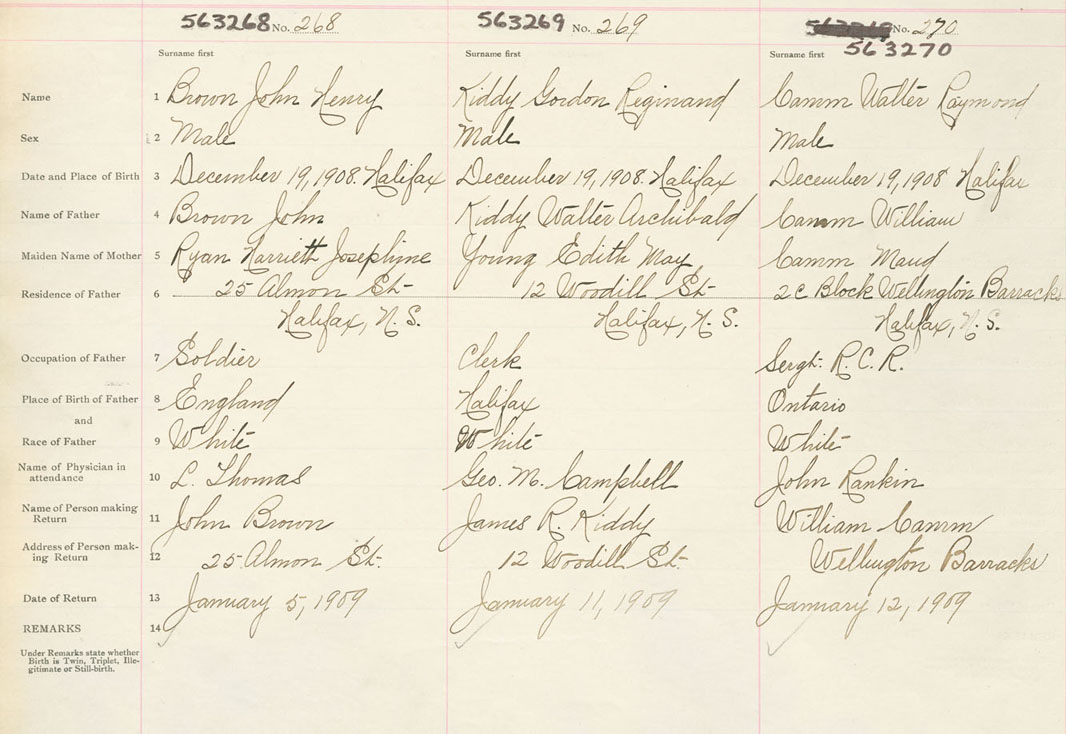 563268 No. 268 563269 No. 269 No. 270
563270
Surname first Surname first Surname first
Name 1 Brown John Henry Kiddy Gordon Reginand Camm Walter Raymond
Sex 2 Male Male Male
Date and Place of Birth 3 December 19, 1908. Halifax December 19, 1908. Halifax December 19, 1908 Halifax
Name of Father 4 Brown John Kiddy Walter Archibald Camm William
Maiden Name of Mother 5 Ryan Harriett Josephine Young Edith May Camm Maud
Residence of Father 6 25 Almon St. 12 Woodill St. 2 C Block Wellington Barracks
Halifax, N. S. Halifax, N. S. Halifax, N. S.
Occupation of Father 7 Soldier Clerk Sergt. R. C. R.
Place of Birth of Father 8 England Halifax Ontario
and
Race of Father 9 White White White
Name of Physician in
attendance 10 L. Thomas Geo. M. Campbell John Rankin
Name of Person making
Return 11 John Brown James R. Kiddy William Camm
Address of Person mak-
ing Return 12 25 Almon St. 12 Woodill St. Wellington Barracks
Date of Return 13 January 5, 1909 January 11, 1909 January 12, 1909
REMARKS 14
Under Remarks state whether
Birth is Twin, Triplet, Ille-
gitimate or Still-birth.